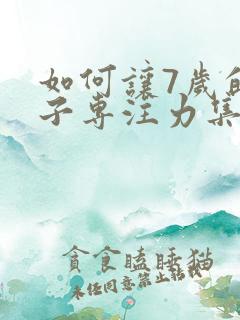 如何讓7歲的
子專注力集
貪食瞌睡猫
未经同意禁止转载